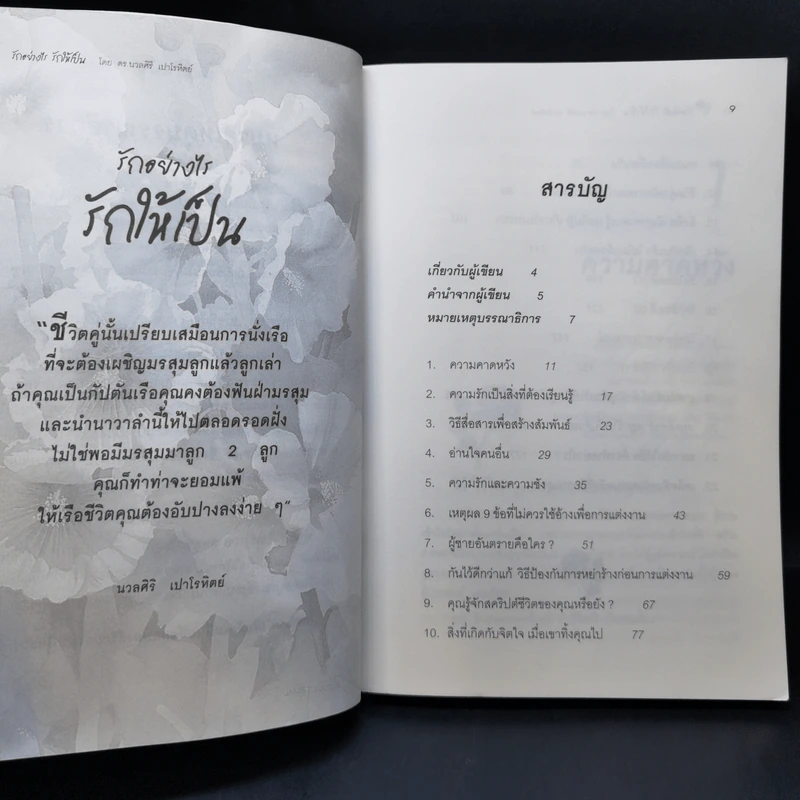 รักอย่างไร รักให้เป็น โดย ดร.นวลศิริ เปาโรหิตย์
รักอย่างไร
รักให้เป็น
"ชีวิตคู่นั้นเปรียบเสมือนการนั่งเรือ
ที่จะต้องเผชิญมรสุมลูกแล้วลูกเล่า
ถ้าคุณเป็นกัปตันเรือคุณคงต้องฟันฝ่ามรสุม
และนำนาวาลำนี้ให้ไปตลอดรอดฝั่ง
ไม่ใช่พอมีมรสุมมาลูก 2 ลูก
คุณก็ทำท่าจะยอมแพ้
ให้เรือชีวิตคุณต้องอับปางลงง่าย ๆ"
นวลศิริ เปาโรหิตย์
9
สารบัญ
เกี่ยวกับผู้เขียน 4
คำนำจากผู้เขียน 5
หมายเหตุบรรณาธิการ 7
1. ความคาดหวัง 11
2. ความรักเป็นสิ่งที่ต้องเรียนรู้ 17
3. วิธีสื่อสารเพื่อสร้างสัมพันธ์ 23
4. อ่านใจคนอื่น 29
5. ความรักและความชัง 35
6. เหตุผล 9 ข้อที่ไม่ควรใช้อ้างเพื่อการแต่งงาน 43
7. ผู้ชายอันตรายคือใคร ? 51
8. กันไว้ดีกว่าแก้ วิธีป้องกันการหย่าร้างก่อนการแต่งงาน 59
9. คุณรู้จักสคริปต์ชีวิตของคุณหรือยัง ? 67
10. สิ่งที่เกิดกับจิตใจ เมื่อเขาทิ้งคุณไป 77